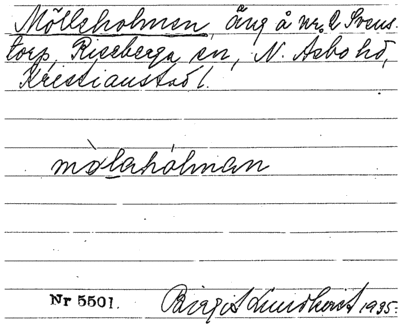 Mölleholmen, äng å nr. 2 Svens-
torp, Riseberga sn, N. Åsbo hd,
Kristianstad l.
mòlahólman
Nr 5501. Birgit Lundkvist 1935.